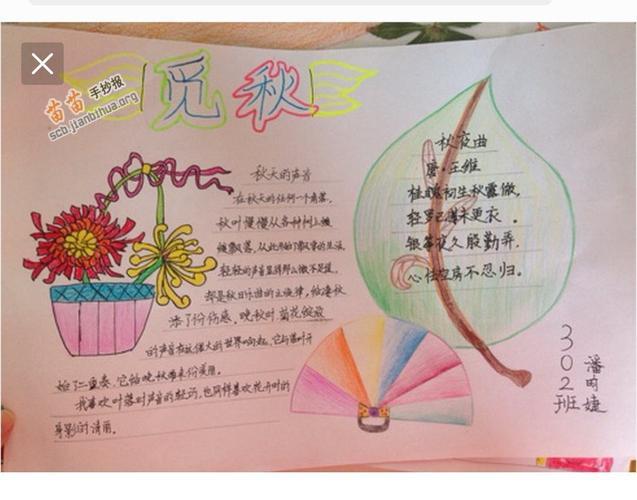 觅秋
苗苗手抄报
scb.jianbihua.org
秋天的声音
在秋天的任何一个角落,
秋叶慢慢从各种树上缓
缓飘落,从此开始了飘零的生活,
轻轻的声音显得那么微不足道,
却是秋日乐曲的主旋律,给凄秋
添了份伤感。晚秋时菊花绽放
的声音在这偌大的世界响起,它与落叶开
始了二重奏,它给晚秋带来份美丽。
我喜欢叶落时声音的轻巧,也同样喜欢花开时的
身影的清丽。
秋夜曲
唐·王维
桂魄初生秋露微,
轻罗已薄未更衣。
银筝夜久殷勤弄,
心怯空房不忍归。
302班
潘 婕